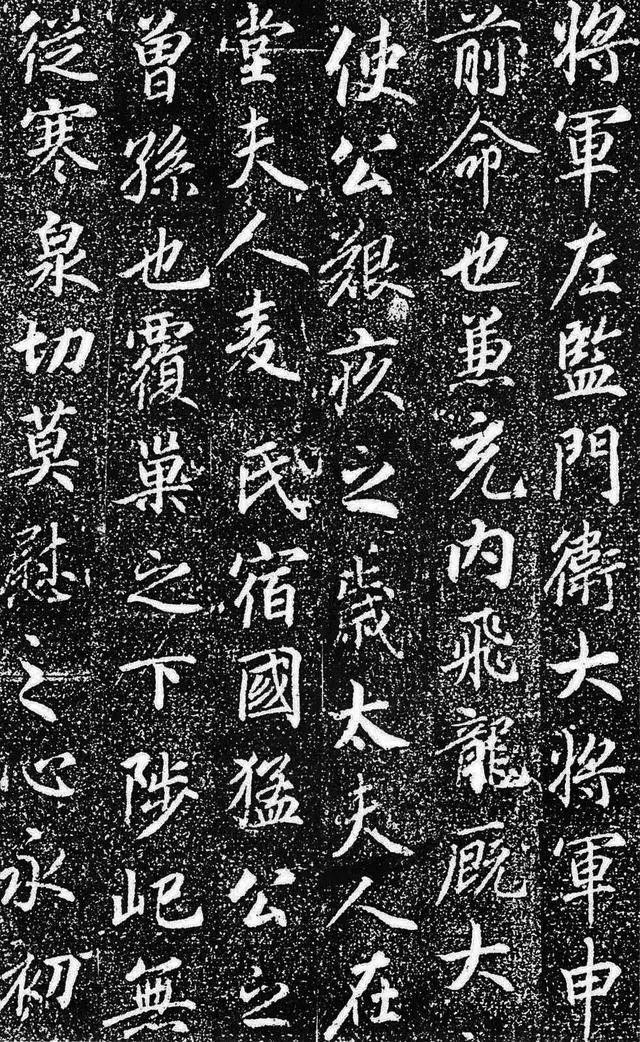 將軍左監門衛大將軍申
前命也兼充内飛龍廐大
使公艱疚之歲太夫人在
堂夫人麦氏宿國猛公之
曽孫也覆巢之下陟屺無
從寒泉切莫慰之心永初